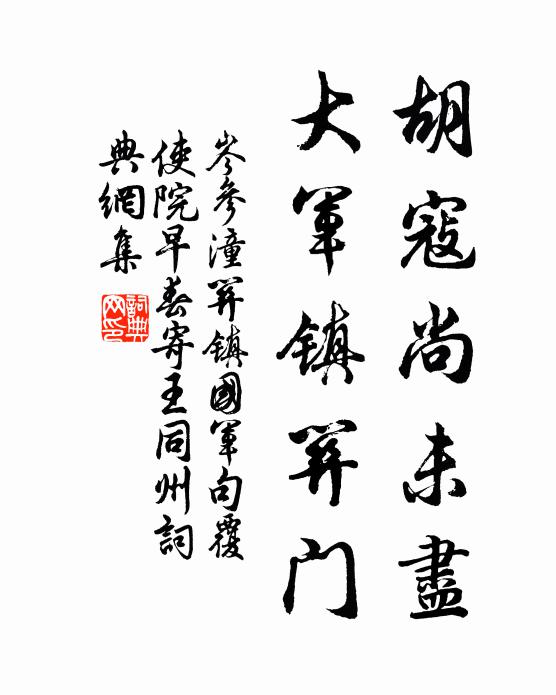 胡寇尚未盡
大軍鎮關門
岑參潼關鎮國軍句覆
使院早春寄王同州詞
典網集
詞典
网印